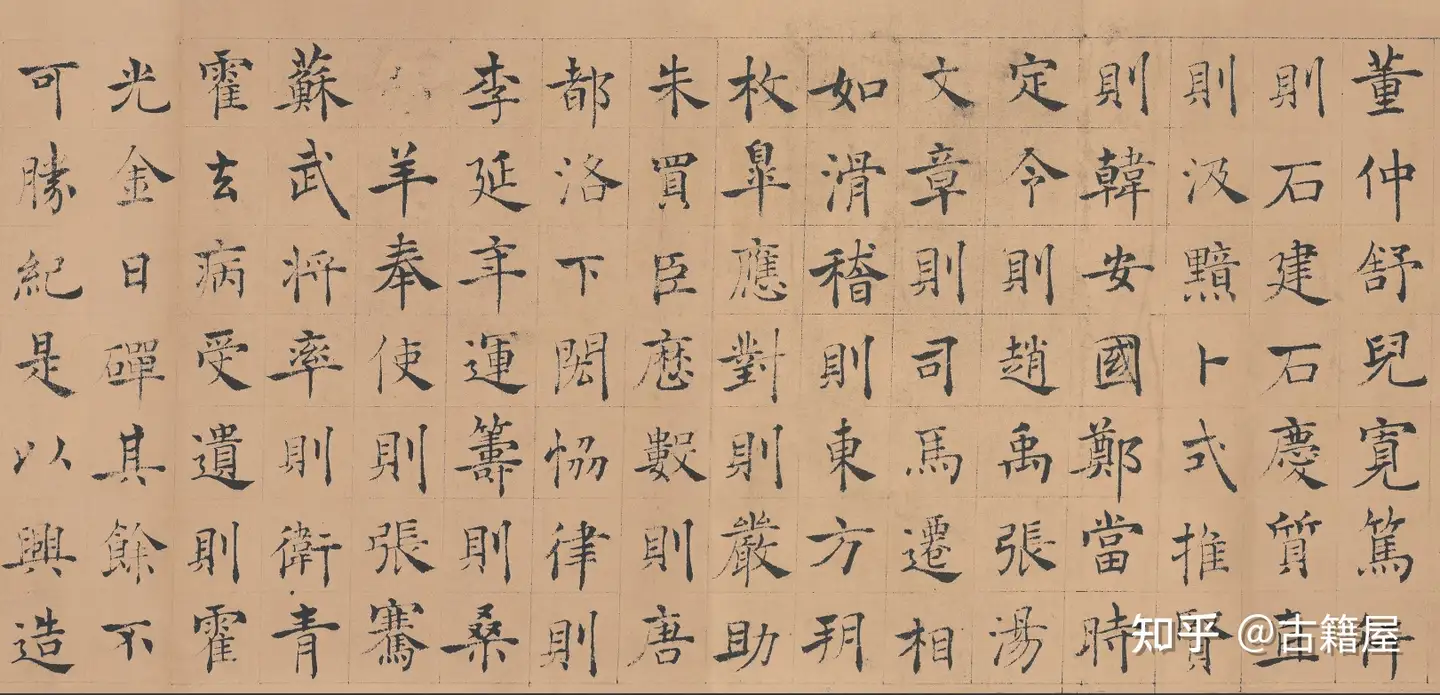 董仲舒兒寬篤行
則石建石慶質直
則汲黯卜式推賢
則韓安國鄭當時
定令則趙禹張湯
文章則司馬遷相
如滑稽則東方朔
枚皐應對則嚴助
朱買臣厯數則唐
都洛下閎恊律則
李延年運籌則桑
羊奉使則張騫
蘇武將率則衛青
霍去病受遺則霍
光金日磾其餘不
可勝紀是以興造
知乎 @古籍屋